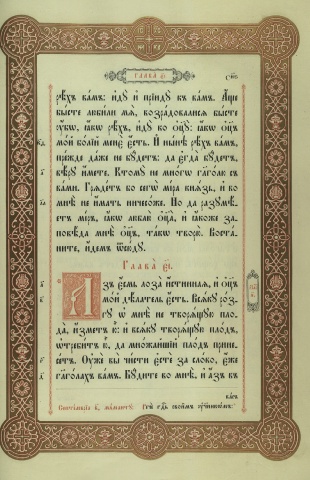 ГЛАВА
рѣхъ вамъ: иду и прїиду къ вамъ. Аще
бысте любили мѧ, возрадовалисѧ бысте
ꙋбѡ, ꙗкѡ рѣхъ, идꙋ ко ѻц҃ꙋ: ꙗкѡ ѻц҃ъ
мой болїй менє̀ єсть. И нынѣ рѣхъ вамъ,
прежде даже не бꙋдетъ: да єгда бꙋдетъ,
вѣрꙋ имете. Ктомꙋ не многѡ гл҃голю съ
вами. Грѧдетъ бо сегѡ мїра кнѧзь, и во
мнѣ не имать ничесоже. Но да разꙋмѣ
етъ мїръ, ꙗкѡ люблю ѻц҃а, и ꙗкоже за
повѣда мнѣ ѻц҃ъ, такѡ творю. Воста
ните, идемъ ѿсюдꙋ.
Глава єі.
Азъ єсмь лоза истиннаѧ, и ѻц҃ъ
мой дѣлатель єсть. Всѧкꙋ роз
гꙋ ѡ мнѣ не творѧщꙋю пло
да, измєтъ ю: и всѧкꙋ творѧщꙋю плодъ,
ѿребитъ ю, да множайшїй плодъ прине
сєтъ. Оуже вы чисти єсте за слово, єже
гл҃голахъ вамъ. Бꙋдите во мнѣ, и азъ въ
васъ